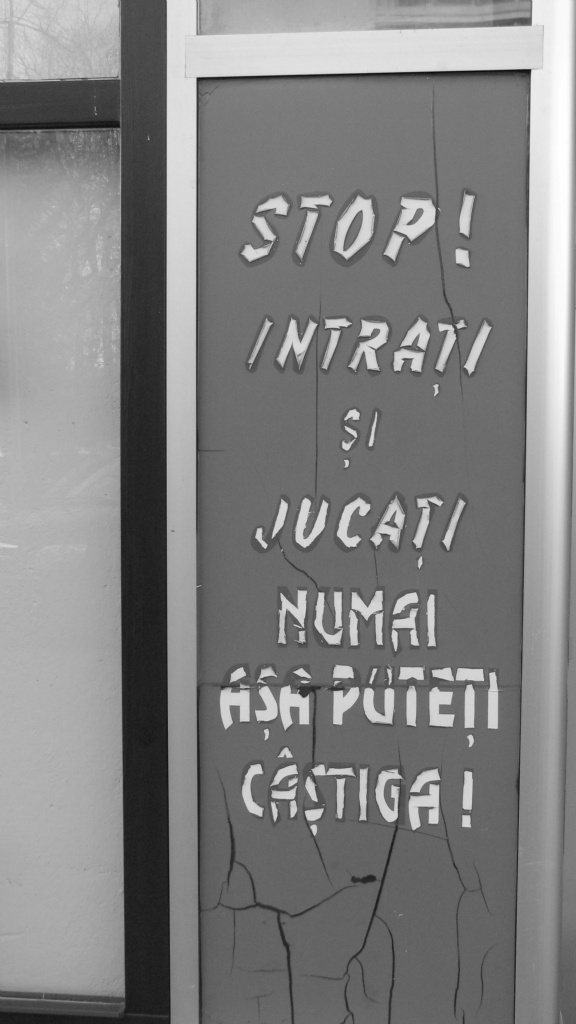 STOP!
INTRAȚI
ȘI
JUCAȚI
NUMAI
AȘA PUTEȚI
CÂȘTIGA!